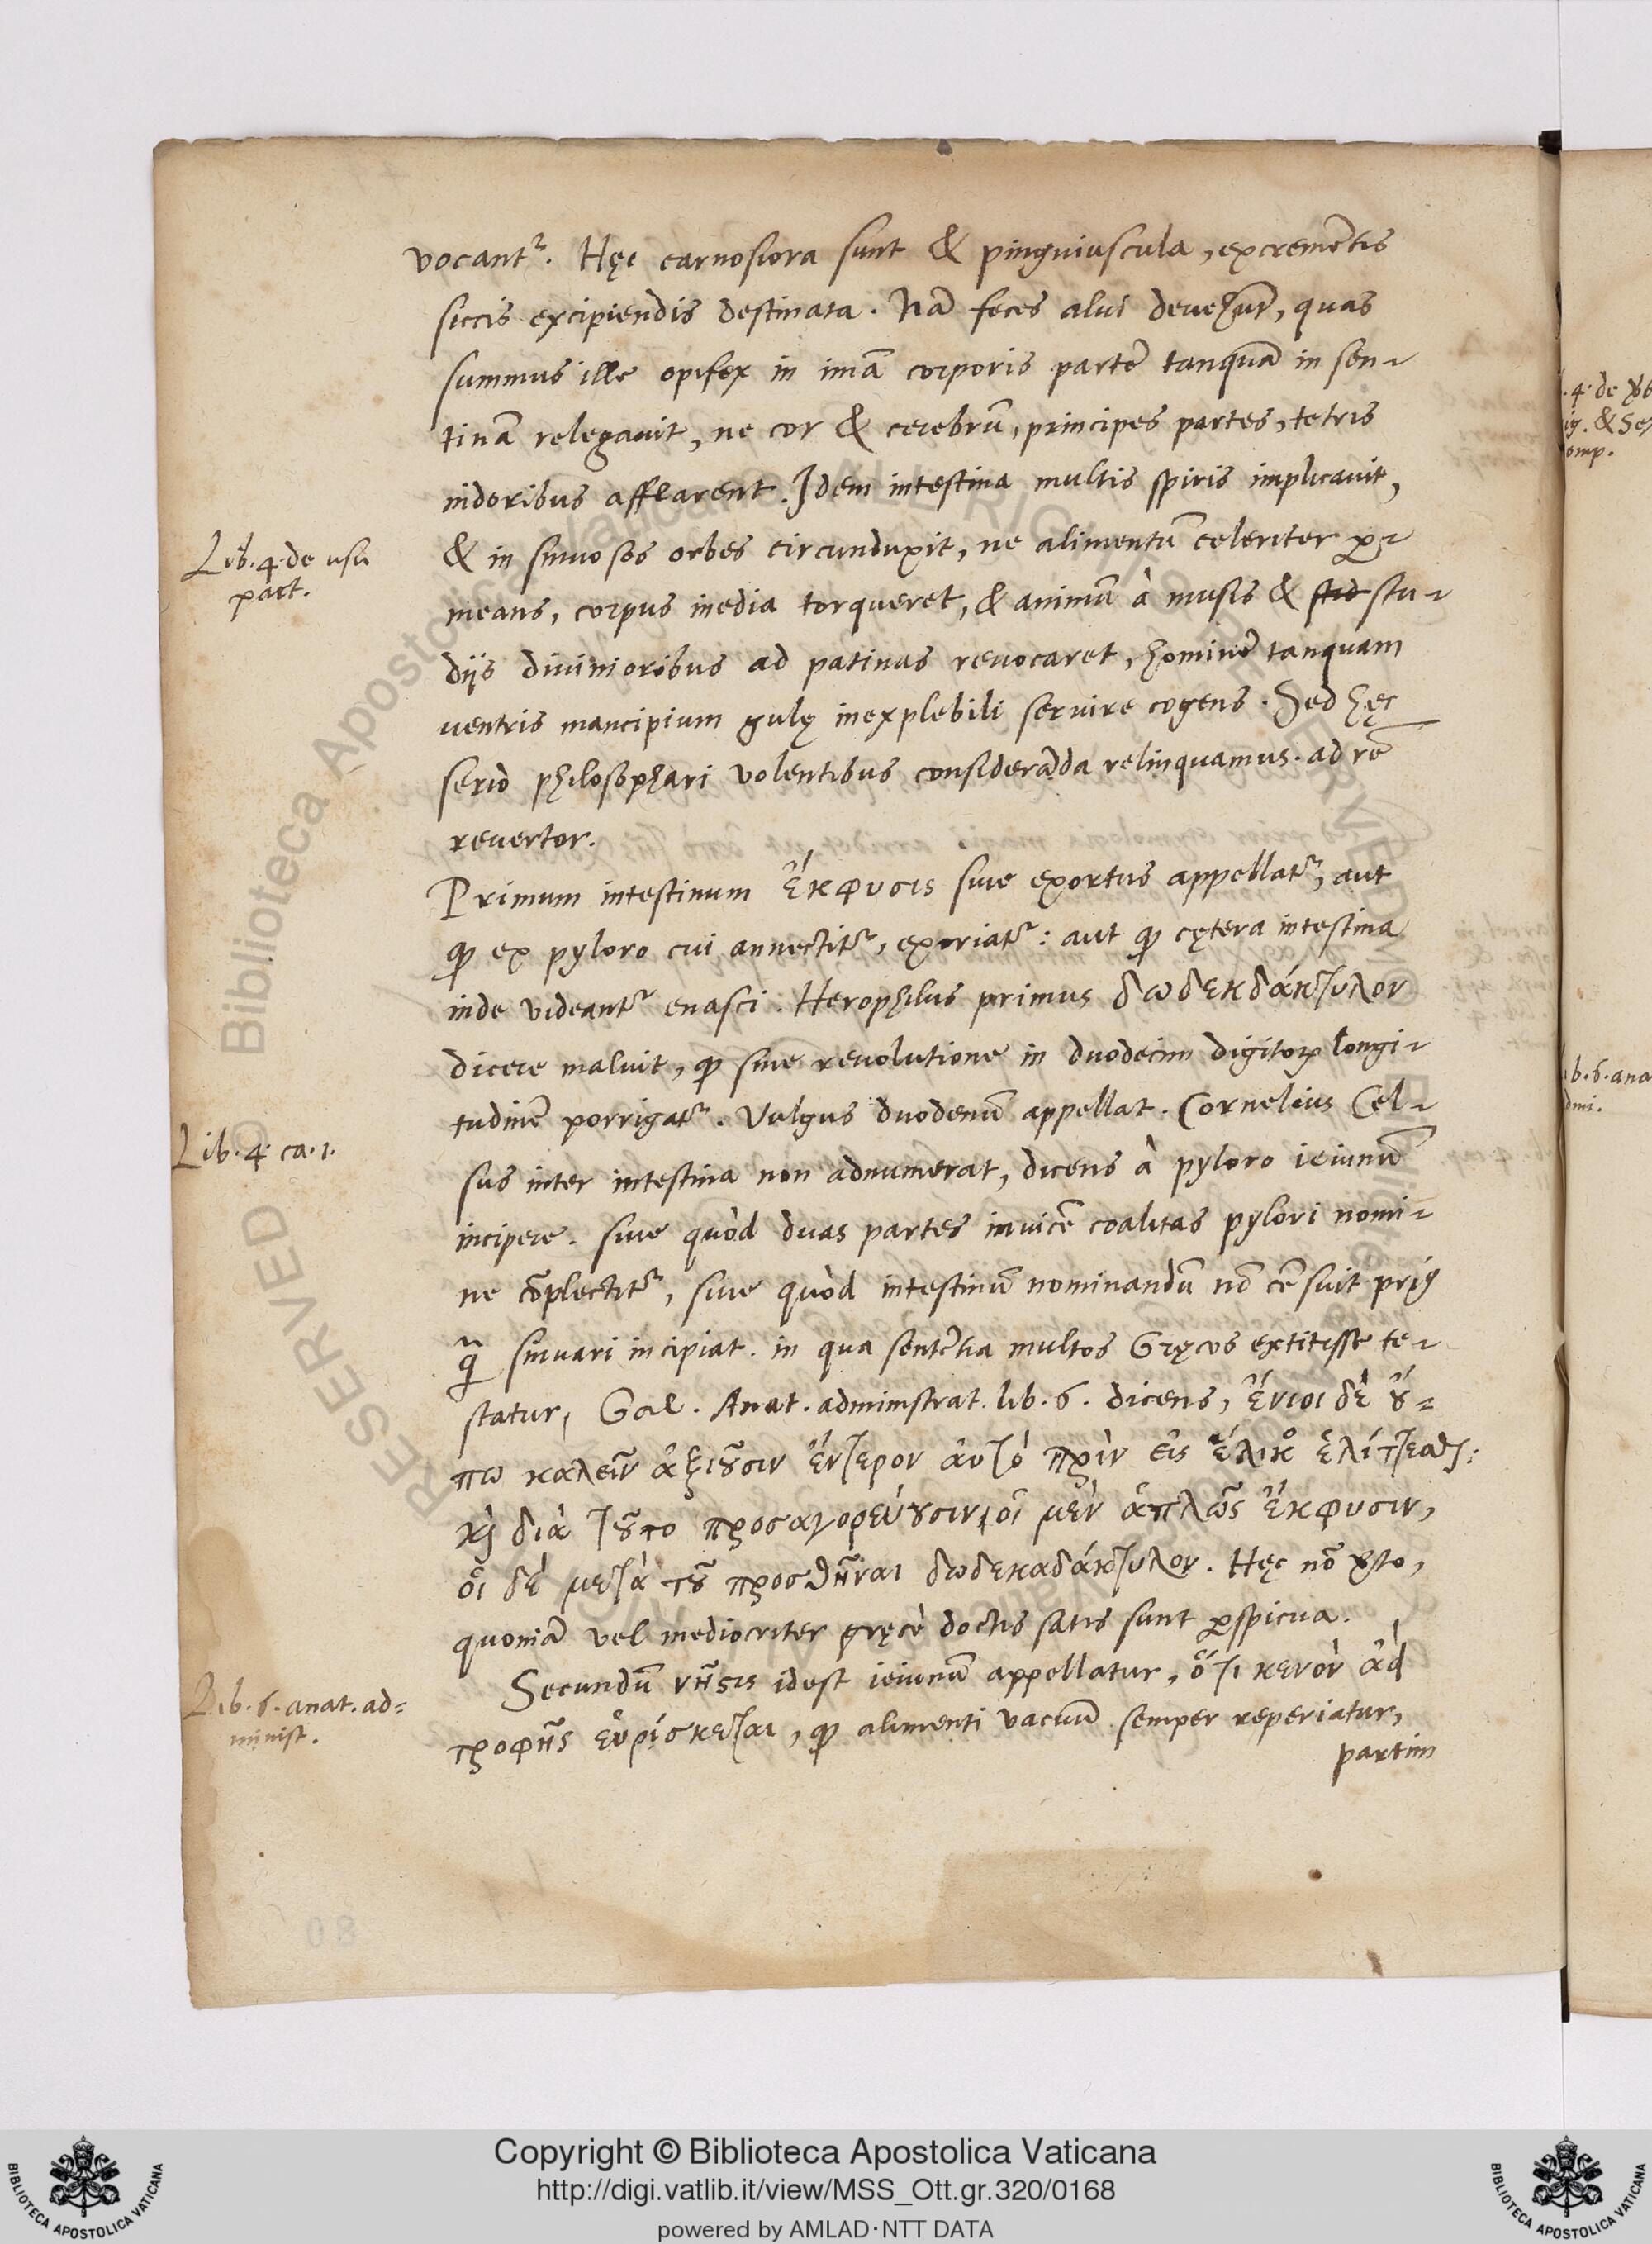 vocantr̃. Hęc carnosiora sunt & pinguiuscula, excremẽtis
siccis excipiendis destinata. Nã feces alui deuehũr, quas
summus ille opifex in imã corporis partẽ tanquã in sen-
tinã relegauit, ne cor & cerebrũ, principes partes, tetris
nidoribus afflarent. Idem intestina multis spiris implicauit,
Lib. 4. de usu
part.
& in sinuosos orbes circunduxit, ne alimentũ celeriter ꝑ-
means, corpus inedia torqueret, & animũ à musis & stu-
dijs diuinioribus ad patinas reuocaret, hominẽ tanquam
uentris mancipium gulę inexplebili seruire cogens. Sed hęc
serio philosophari volentibus considerãda relinquamus. ad rẽ
reuertor.
Primum intestinum ἔκφυσις siue exortus appellatr̃, aut
ꝙ ex pyloro cui annectitr̃, exoriatr̃: aut ꝙ cętera intestina
inde videantr̃ enasci. Herophilus primus δωδεκδάκτυλον
dicere maluit, ꝙ siue reuolutione in duodecim digitoꝝ longi-
tudinẽ porrigatr̃. Vulgus duodenũ appellat. Cornelius Cel-
Lib. 4. ca. 1.
sus inter intestina non adnumerat, dicens à pyloro ieiunũ
incipere. siue quòd duas partes inuicẽ coalitas pylori nomi-
ne cõplectitr̃, siue quòd intestinũ nominandũ nõ cẽsuit priꝰ
q̃ sinuari incipiat. in qua sentẽtia multos Gręcos extitisse te-
statur, Gal. Anat. administrat. lib. 6. dicens, ἔνιοι δὲ οὔ-
πω καλεῖν ἀξιοῦσιν ἔντερον ἀυτό πρὶν εἰς ἕλικας ἑλίττεσθαι:
καὶ διὰ τοῦτο προσαγορεύουσιν, οἱ μὲν ἁπλῶς ἔκφυσιν,
οἱ δὲ μετὰ τοῦ προσθῆναι δωδεκαδάκτυλον. Hęc nõ ỽto,
quoniã vel mediocriter gręcè doctis satis sunt ꝑspicua.
Secundũ νῆστις idest ieiunũ appellatur, ὅτι κενὸν ἀεὶ
Lib. 6. anat. ad=
minist.
τροφῆς εὑρίσκεται, ꝙ alimenti vacuũ semper reperiatur,
partim
4. de
ig. &
omp.
b. 6. ana
dmi.
Copyright © Biblioteca Apostolica Vaticana
http://digi.vatlib.it/view/MSS_Ott.gr.320/0168
powered by AMLAD·NTT DATA
BIBLIOTECA APOSTOLICA VATICANA
BIBLIOTECA APOSTOLICA VATICANA